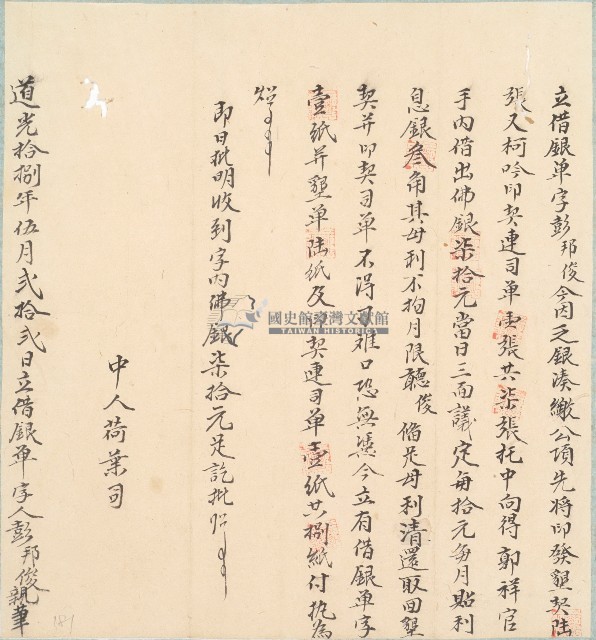 立借銀单字彭邦俊今因乏銀湊繳公項先將印發墾契陸
張又柯吟印契連司单壹張共柒張托中向得郭祥官
手內借出佛銀柒拾元當日三面議定每拾元每月貼利
息銀叁角其母利不拘月限聽俊俻足母利清還取回墾
契并印契司单不得難口恐無憑今立有借銀单字
壹紙并墾单陸紙及印契連司单壹紙共捌紙付執為
炤
即日批明收到字內佛銀柒拾元足訖批炤
中人荷葉司
道光拾捌年伍月弍拾弍日立借銀单字人彭邦俊親筆
國史館臺灣文獻館
TAIWAN HISTORICA
181